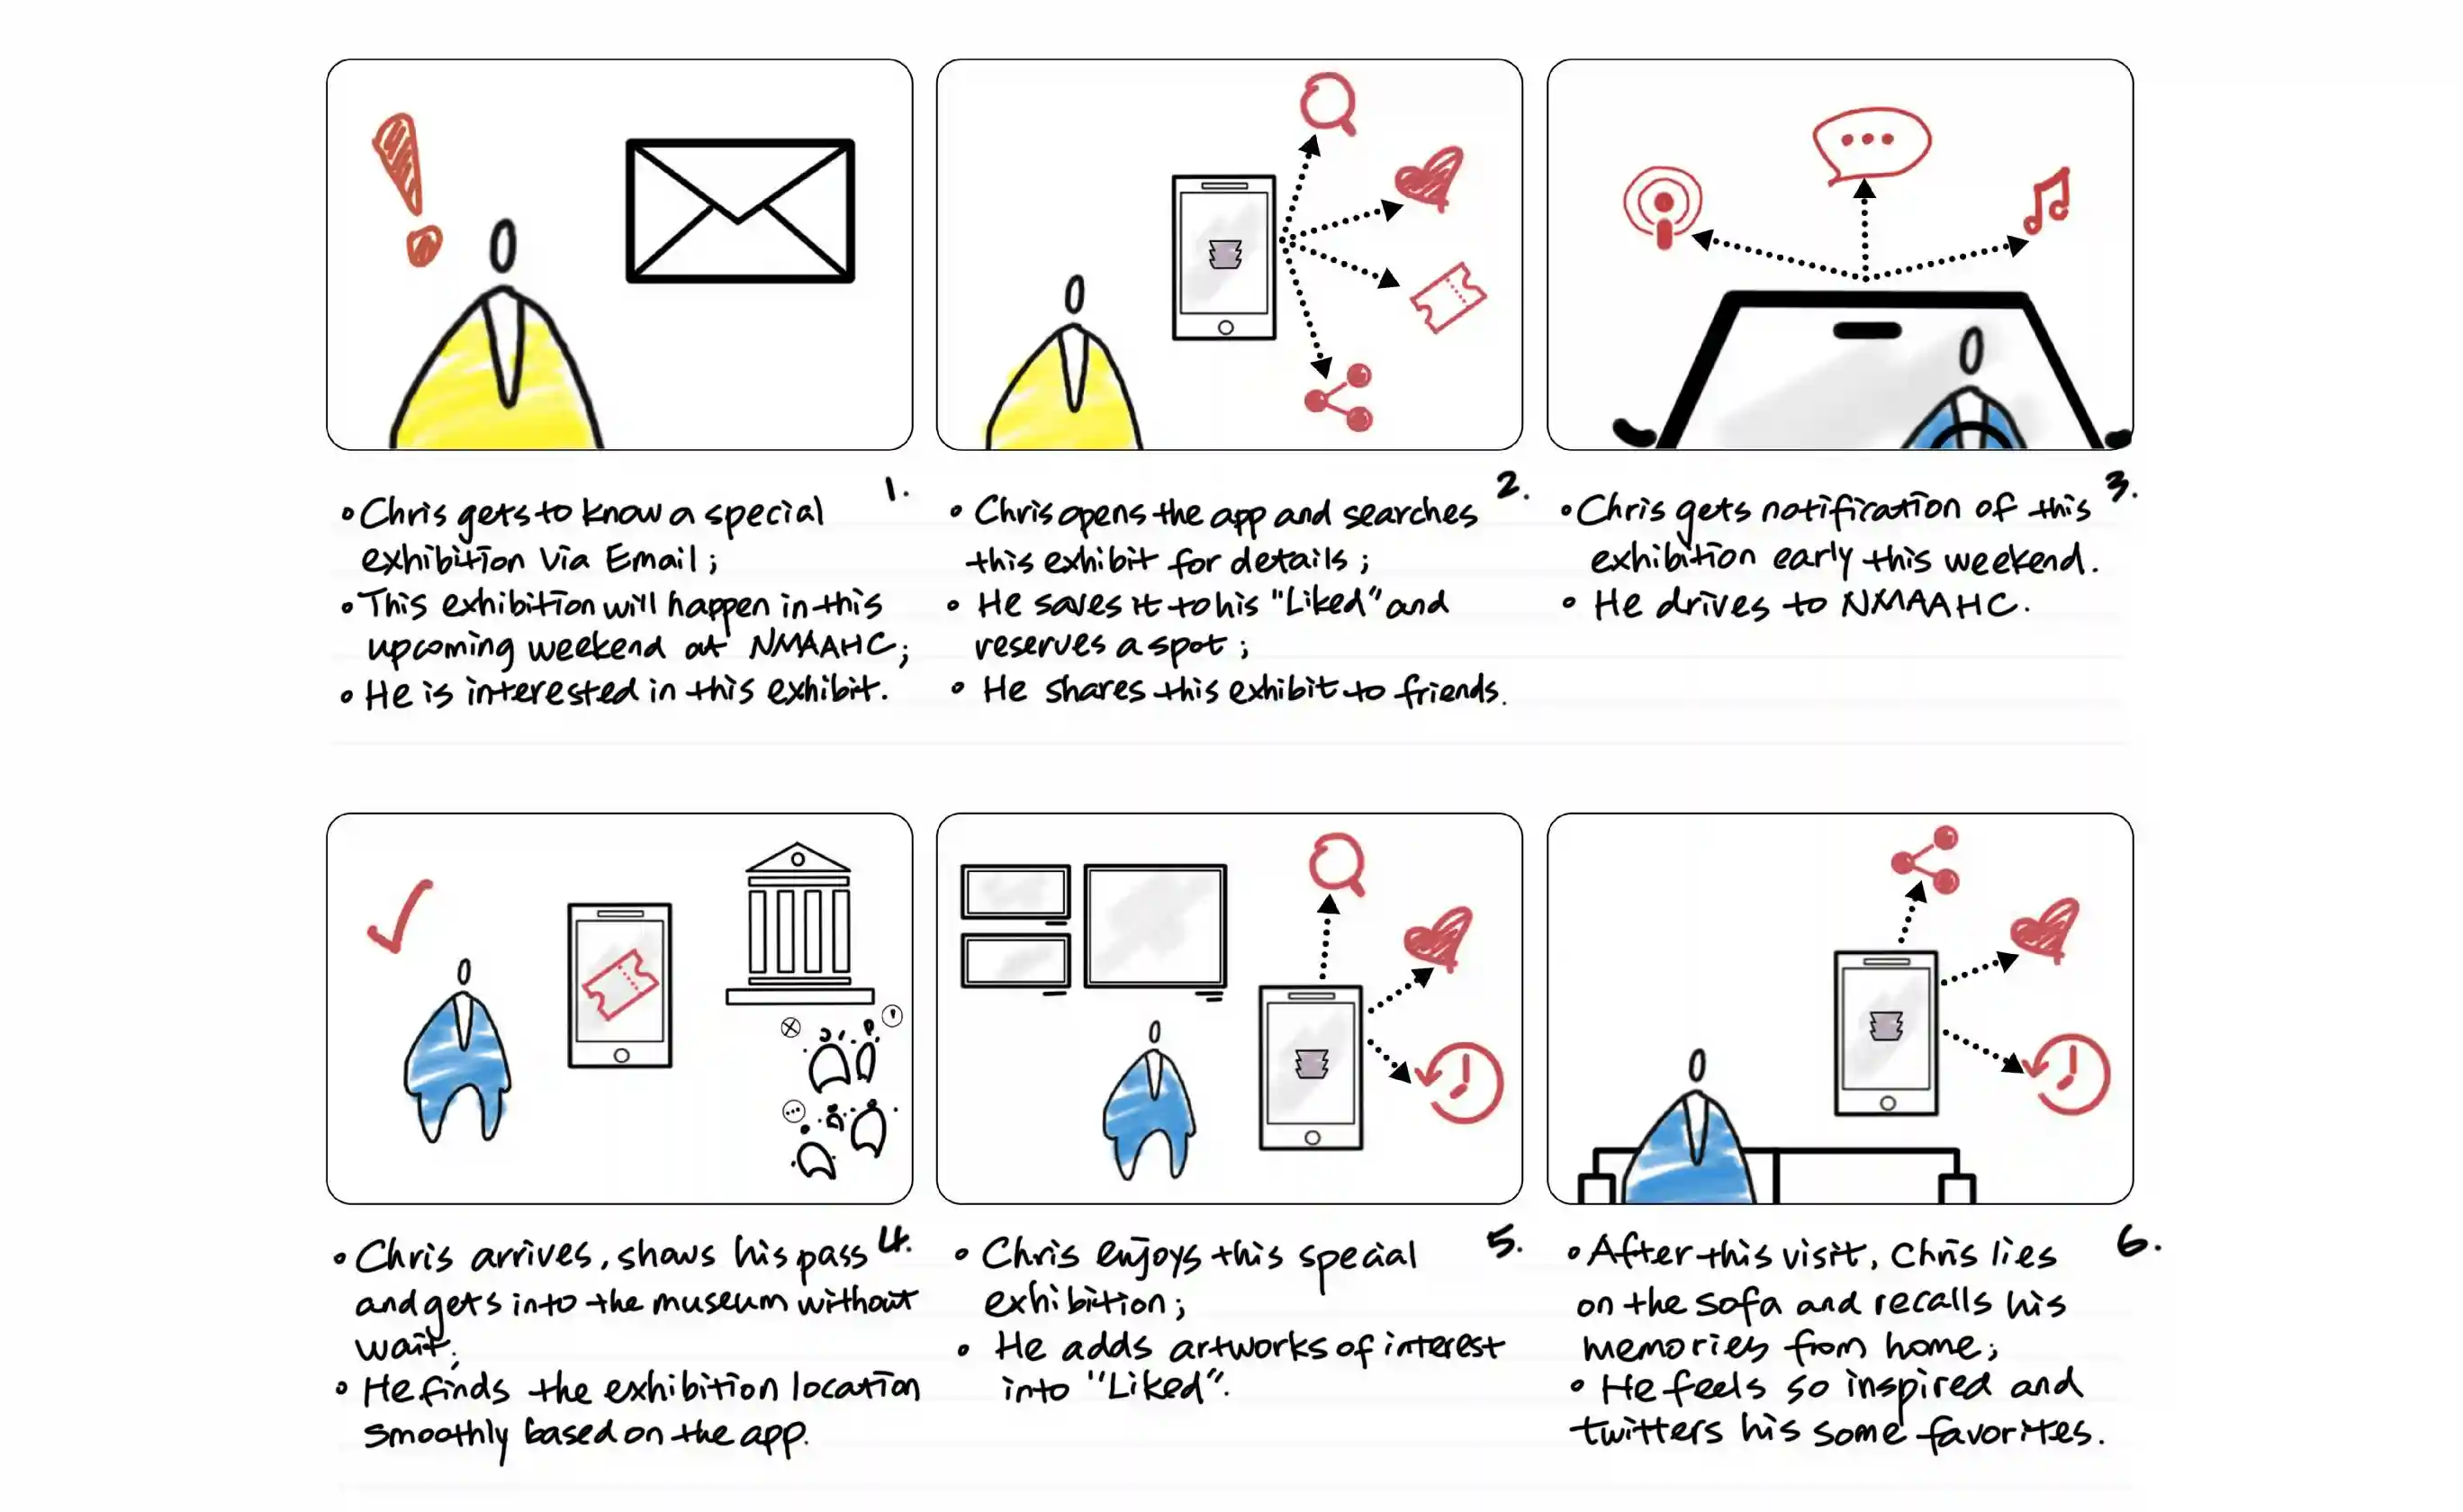 1.
• Chris gets to know a special
exhibition via Email;
• This exhibition will happen in this
upcoming weekend at NMAAHC;
• He is interested in this exhibit.
2.
• Chris opens the app and searches
this exhibit for details;
• He saves it to his "Liked" and
reserves a spot;
• He shares this exhibit to friends.
3.
• Chris gets notification of this
exhibition early this weekend.
• He drives to NMAAHC.
4.
• Chris arrives, shows his pass
and gets into the museum without
wait;
• He finds the exhibition location
smoothly based on the app.
5.
• Chris enjoys this special
exhibition;
• He adds artworks of interest
into "Liked".
6.
• After this visit, Chris lies
on the sofa and recalls his
memories from home;
• He feels so inspired and
twitters his some favorites.